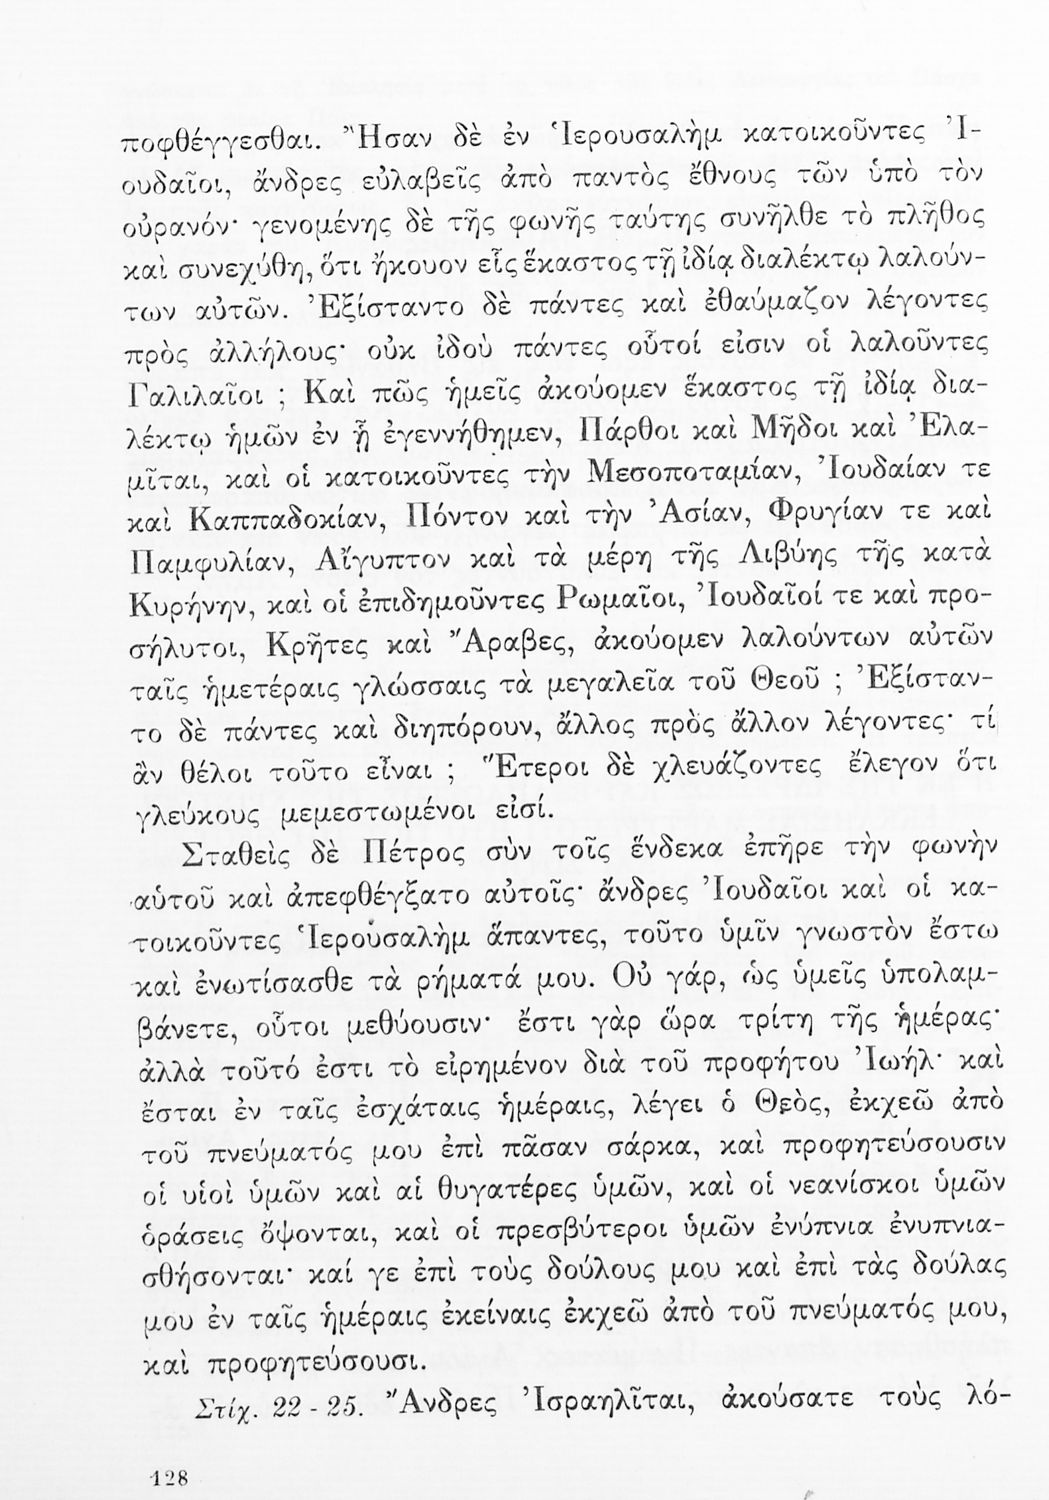 ποφθέγγεσθαι. Ἦσαν δὲ ἐν Ἱερουσαλὴμ κατοικοῦντες Ἰ-
ουδαῖοι, ἄνδρες εὐλαβεῖς ἀπὸ παντὸς ἔθνους τῶν ὑπὸ τὸν
οὐρανόν· γενομένης δὲ τῆς φωνῆς ταύτης συνῆλθε τὸ πλῆθος
καὶ συνεχύθη, ὅτι ἤκουον εἷς ἕκαστος τῇ ἰδίᾳ διαλέκτῳ λαλούν-
των αὐτῶν. Ἐξίσταντο δὲ πάντες καὶ ἐθαύμαζον λέγοντες
πρὸς ἀλλήλους· οὐκ ἰδοὺ πάντες οὗτοί εἰσιν οἱ λαλοῦντες
Γαλιλαῖοι ; Καὶ πῶς ἡμεῖς ἀκούομεν ἕκαστος τῇ ἰδίᾳ δια-
λέκτῳ ἡμῶν ἐν ᾗ ἐγεννήθημεν, Πάρθοι καὶ Μῆδοι καὶ Ἐλα-
μῖται, καὶ οἱ κατοικοῦντες τὴν Μεσοποταμίαν, Ἰουδαίαν τε
καὶ Καππαδοκίαν, Πόντον καὶ τὴν Ἀσίαν, Φρυγίαν τε καὶ
Παμφυλίαν, Αἴγυπτον καὶ τὰ μέρη τῆς Λιβύης τῆς κατὰ
Κυρήνην, καὶ οἱ ἐπιδημοῦντες Ρωμαῖοι, Ἰουδαῖοί τε καὶ προ-
σήλυτοι, Κρῆτες καὶ Ἄραβες, ἀκούομεν λαλούντων αὐτῶν
ταῖς ἡμετέραις γλώσσαις τὰ μεγαλεῖα τοῦ Θεοῦ ; Ἐξίσταν-
το δὲ πάντες καὶ διηπόρουν, ἄλλος πρὸς ἄλλον λέγοντες· τί
ἂν θέλοι τοῦτο εἶναι ; Ἕτεροι δὲ χλευάζοντες ἔλεγον ὅτι
γλεύκους μεμεστωμένοι εἰσί.
Σταθεὶς δὲ Πέτρος σὺν τοῖς ἕνδεκα ἐπῆρε τὴν φωνὴν
αὑτοῦ καὶ ἀπεφθέγξατο αὐτοῖς· ἄνδρες Ἰουδαῖοι καὶ οἱ κα-
τοικοῦντες Ἱερουσαλὴμ ἅπαντες, τοῦτο ὑμῖν γνωστὸν ἔστω
καὶ ἐνωτίσασθε τὰ ρήματά μου. Οὐ γάρ, ὡς ὑμεῖς ὑπολαμ-
βάνετε, οὗτοι μεθύουσιν· ἔστι γὰρ ὥρα τρίτη τῆς ἡμέρας·
ἀλλὰ τοῦτό ἐστι τὸ εἰρημένον διὰ τοῦ προφήτου Ἰωήλ· καὶ
ἔσται ἐν ταῖς ἐσχάταις ἡμέραις, λέγει ὁ Θεὸς, ἐκχεῶ ἀπὸ
τοῦ πνεύματός μου ἐπὶ πᾶσαν σάρκα, καὶ προφητεύσουσιν
οἱ υἱοὶ ὑμῶν καὶ αἱ θυγατέρες ὑμῶν, καὶ οἱ νεανίσκοι ὑμῶν
ὁράσεις ὄψονται, καὶ οἱ πρεσβύτεροι ὑμῶν ἐνύπνια ἐνυπνια-
σθήσονται· καί γε ἐπὶ τοὺς δούλους μου καὶ ἐπὶ τὰς δούλας
μου ἐν ταῖς ἡμέραις ἐκείναις ἐκχεῶ ἀπὸ τοῦ πνεύματός μου,
καὶ προφητεύσουσι.
Στίχ. 22 - 25. Ἄνδρες Ἰσραηλῖται, ἀκούσατε τοὺς λό-
128